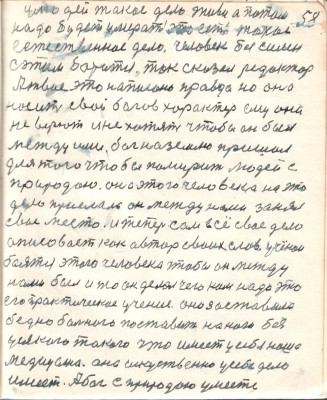 58
что дей такое дело живи а потом
надо будет умерат это есть такое
естественное дело, человек без силен
с этим боротся, так сказал редактор
Я твое это написано правда но оно
носит свой богов характер ему они
не верют и не хотят чтобы он был
между ими, бог на землю пришол
для того чтобы помирит людей с
природою. она этого человека на это
дело прислала он между нами занял
свое место. и тепер сам всё свое дело
описовает как автор своих слов, учёнаи
боятся этого человека чтобы он между
нами был и то он делал чего нам надо это
его практическое учение. оно заставило
бедно больного поставит на ноги без
усякого такого что имеет у себя наша
медицина. она следственно у себе дело
имеет. А бог с природою умеете